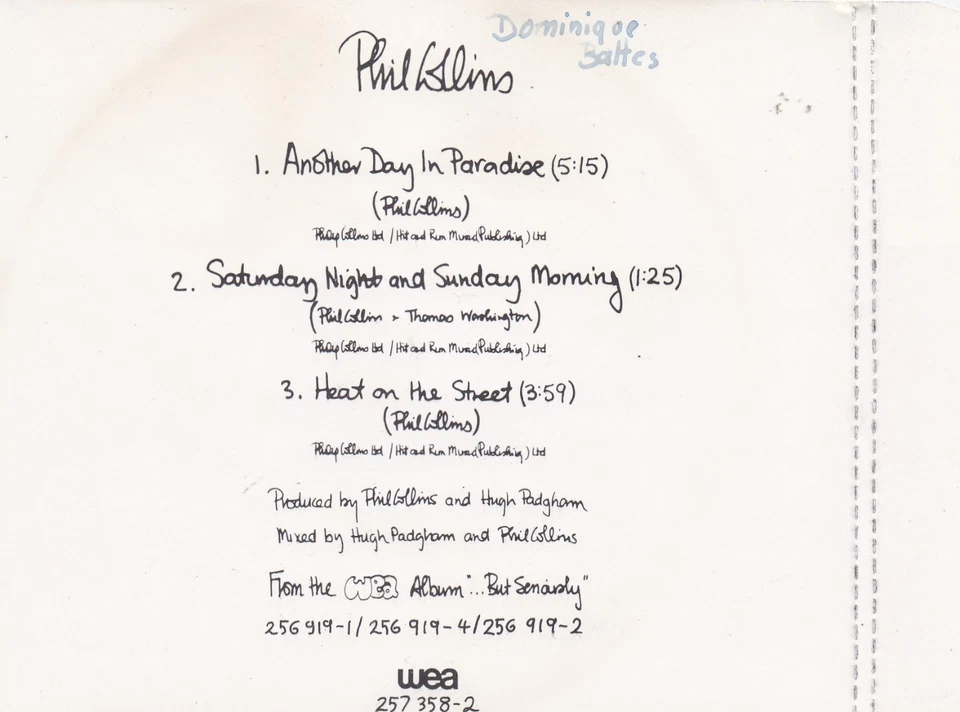 Dominique
Battes
Phil Collins
1. Another Day In Paradise (5:15)
(Phil Collins)
Philip Collins Ltd / Hit and Run Music (Publishing) Ltd
2. Saturday Night and Sunday Morning (1:25)
(Phil Collins + Thomas Washington)
Philip Collins Ltd / Hit and Run Music (Publishing) Ltd
3. Heat on the Street (3:59)
(Phil Collins)
Philip Collins Ltd / Hit and Run Music (Publishing) Ltd
Produced by Phil Collins and Hugh Padgham
Mixed by Hugh Padgham and Phil Collins
From the wea Album "...But Seriously"
256 919-1/256 919-4/256 919-2
wea
257 358-2